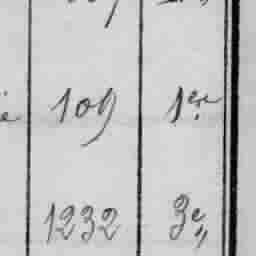 109 1ere
1232 3e„